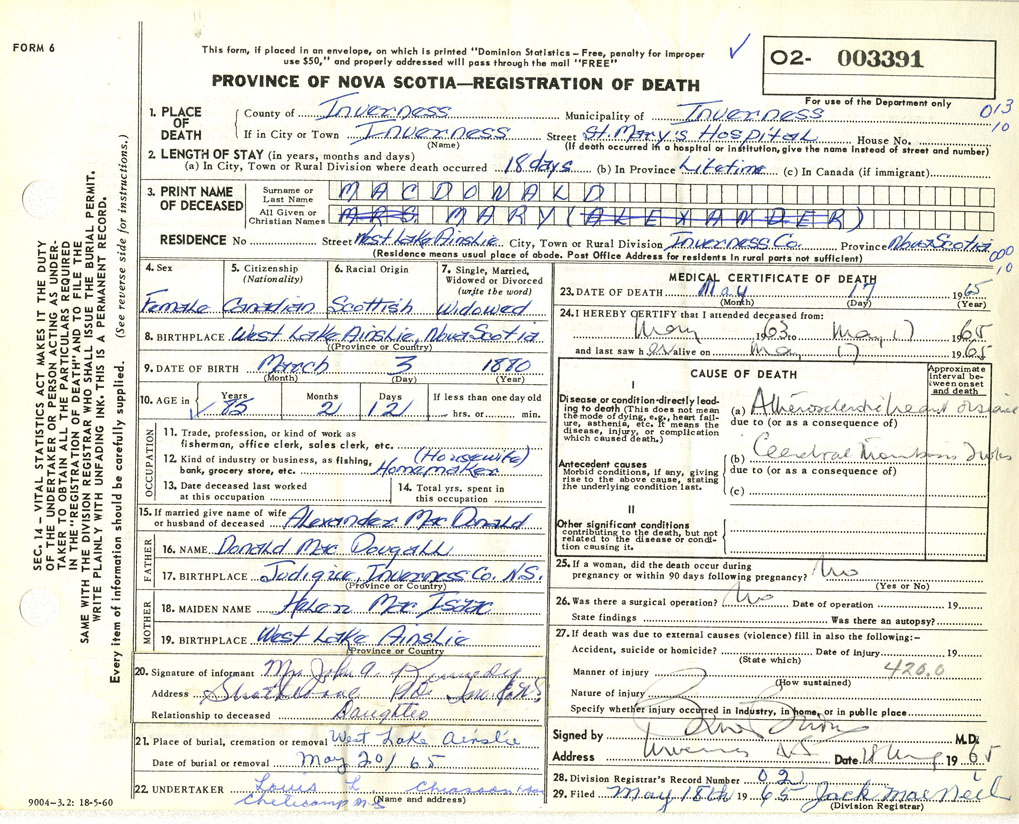 FORM 6
This form, if placed in an envelope, on which is printed "Dominion Statistics – Free, penalty for improper
use $50," and properly addressed will pass through the mail "FREE"
✓
O2- 003391
PROVINCE OF NOVA SCOTIA—REGISTRATION OF DEATH
For use of the Department only
013
10
1. PLACE OF DEATH
County of Inverness Municipality of Inverness
If in City or Town Inverness Street St. Mary's Hospital House No.
(Name) (If death occurred in a hospital or institution, give the name instead of street and number)
2. LENGTH OF STAY (in years, months and days)
(a) In City, Town or Rural Division where death occurred 18 days (b) In Province Lifetime (c) In Canada (if immigrant)
3. PRINT NAME OF DECEASED
Surname or Last Name MACDONALD
All Given or Christian Names MRS MARY (ALEXANDER)
RESIDENCE No Street West Lake Ainslie City, Town or Rural Division Inverness Co. Province Nova Scotia
(Residence means usual place of abode. Post Office Address for residents in rural parts not sufficient)
000
10
4. Sex Female
5. Citizenship (Nationality) Canadian
6. Racial Origin Scottish
7. Single, Married, Widowed or Divorced (write the word) Widowed
8. BIRTHPLACE West Lake Ainslie, Nova Scotia
(Province or Country)
9. DATE OF BIRTH March 3 1880
(Month) (Day) (Year)
10. AGE in ✓ Years 85 Months 2 Days 12 If less than one day old hrs. or min.
OCCUPATION
11. Trade, profession, or kind of work as
fisherman, office clerk, sales clerk, etc.
12. Kind of industry or business, as fishing, (Housewife)
bank, grocery store, etc. Homemaker
13. Date deceased last worked at this occupation
14. Total yrs. spent in this occupation
15. If married give name of wife
or husband of deceased Alexander Mac Donald
FATHER
16. NAME Donald Mac Dougall
17. BIRTHPLACE Judique, Inverness Co. N.S.
(Province or Country)
MOTHER
18. MAIDEN NAME Helen Mac Isaac
19. BIRTHPLACE West Lake Ainslie
(Province or Country)
20. Signature of informant Mrs John A. Kennedy
Address
Relationship to deceased Daughter
21. Place of burial, cremation or removal West Lake Ainslie
Date of burial or removal May 20/65
22. UNDERTAKER Louis L. Chiasson
Cheticamp N.S
(Name and address)
9004-3.2: 18-5-60
MEDICAL CERTIFICATE OF DEATH
23. DATE OF DEATH May 17 1965
(Month) (Day) (Year)
24. I HEREBY CERTIFY that I attended deceased from:
May 1963 May 17 1965
and last saw h er alive on May 17 1965
CAUSE OF DEATH
Approximate interval between onset and death
I
Disease or condition directly leading to death (This does not mean the mode of dying, e.g., heart failure, asthenia, etc. It means the disease, injury, or complication which caused death.)
(a) heart disease
due to (or as a consequence of)
Antecedent causes
Morbid conditions, if any, giving rise to the above cause, stating the underlying condition last.
(b) Cerebral
due to (or as a consequence of)
(c)
II
Other significant conditions contributing to the death, but not related to the disease or condition causing it.
25. If a woman, did the death occur during
pregnancy or within 90 days following pregnancy? No
(Yes or No)
26. Was there a surgical operation? No Date of operation 19
State findings Was there an autopsy?
27. If death was due to external causes (violence) fill in also the following:–
Accident, suicide or homicide? Date of injury 19
(State which)
Manner of injury 420.0
(How sustained)
Nature of injury
Specify whether injury occurred in Industry, in home, or in public place
Signed by M.D.
Address Inverness NS Date 18 1965
28. Division Registrar's Record Number 021
29. Filed May 18th 1965 Jack MacNeil
(Division Registrar)
SEC. 14 – VITAL STATISTICS ACT MAKES IT THE DUTY
OF THE UNDERTAKER OR PERSON ACTING AS UNDER-
TAKER TO OBTAIN ALL THE PARTICULARS REQUIRED
IN THE "REGISTRATION OF DEATH" AND TO FILE THE
SAME WITH THE DIVISION REGISTRAR WHO SHALL ISSUE THE BURIAL PERMIT.
WRITE PLAINLY WITH UNFADING INK. THIS IS A PERMANENT RECORD.
Every item of information should be carefully supplied. (See reverse side for instructions.)